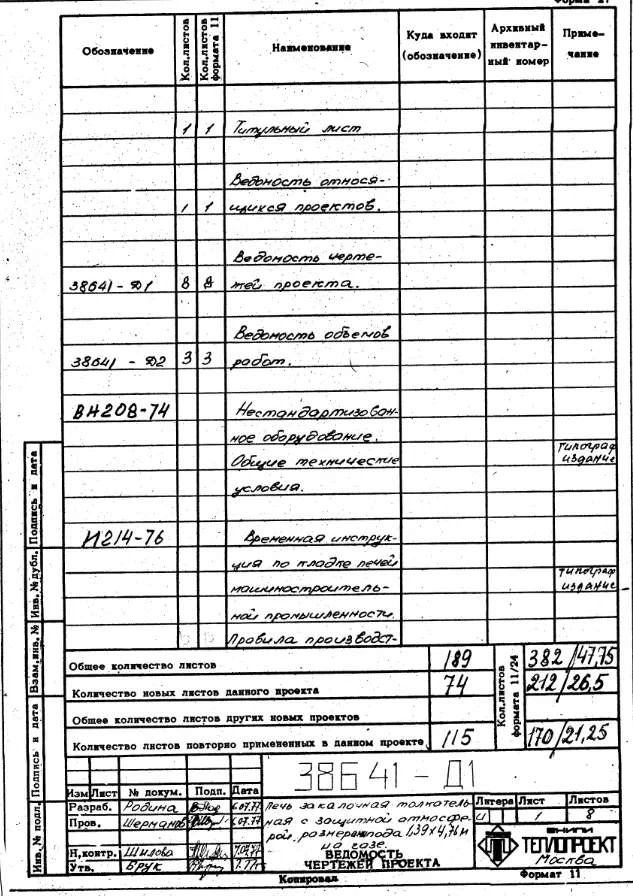 Форма 21
Обозначение
Кол.листов
Кол.листов формата 11
Наименование
Куда входит (обозначение)
Архивный инвентар- ный номер
Приме- чание
1 1 Титульный лист
Ведомость относя-
1 1 щихся проектов.
Ведомость черте-
38641 - Д1 8 8 жей проекта.
Ведомость объемов
38641 - Д2 3 3 работ.
ВН208-74 Нестандартизован-
ное оборудование.
Общие технические
типограф
издание
условия.
И214-76 Временная инструк-
ция по кладке печей
машиностроитель-
типограф
издание
ной промышленности.
Правила производст-
Общее количество листов 189
Количество новых листов данного проекта 74
Общее количество листов других новых проектов
Количество листов повторно примененных в данном проекте 115
Кол.листов формата 11/24
382/47,75
212/26,5
170/21,25
Подпись и дата
Инв.№дубл.
Взам.инв.№
Подпись и дата
Инв.№ подл.
38641-Д1
Изм Лист № докум. Подп. Дата
Разраб. Родина 6.07.77
Пров. 6.07.77
Н.контр. Шилова
Утв. Брук
Печь закалочная толкатель-
ная с защитной атмосфе-
рой, размером пода 1,39х4,76м
на газе.
ВЕДОМОСТЬ
ЧЕРТЕЖЕЙ ПРОЕКТА
Литера Лист Листов
и 1 8
ВНИПИ
ТЕПЛОПРОЕКТ
Москва
Копировал
Формат 11